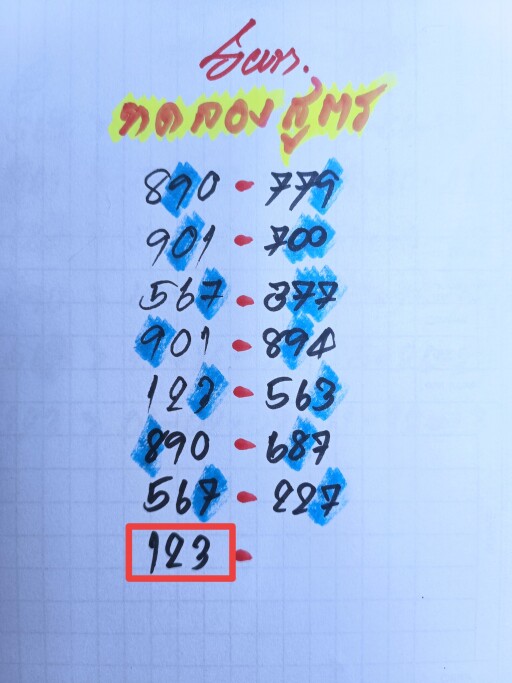 ทดลองสูตร
890 - 779
901 - 700
567 - 377
901 - 894
123 - 563
890 - 687
567 - 227
123 -